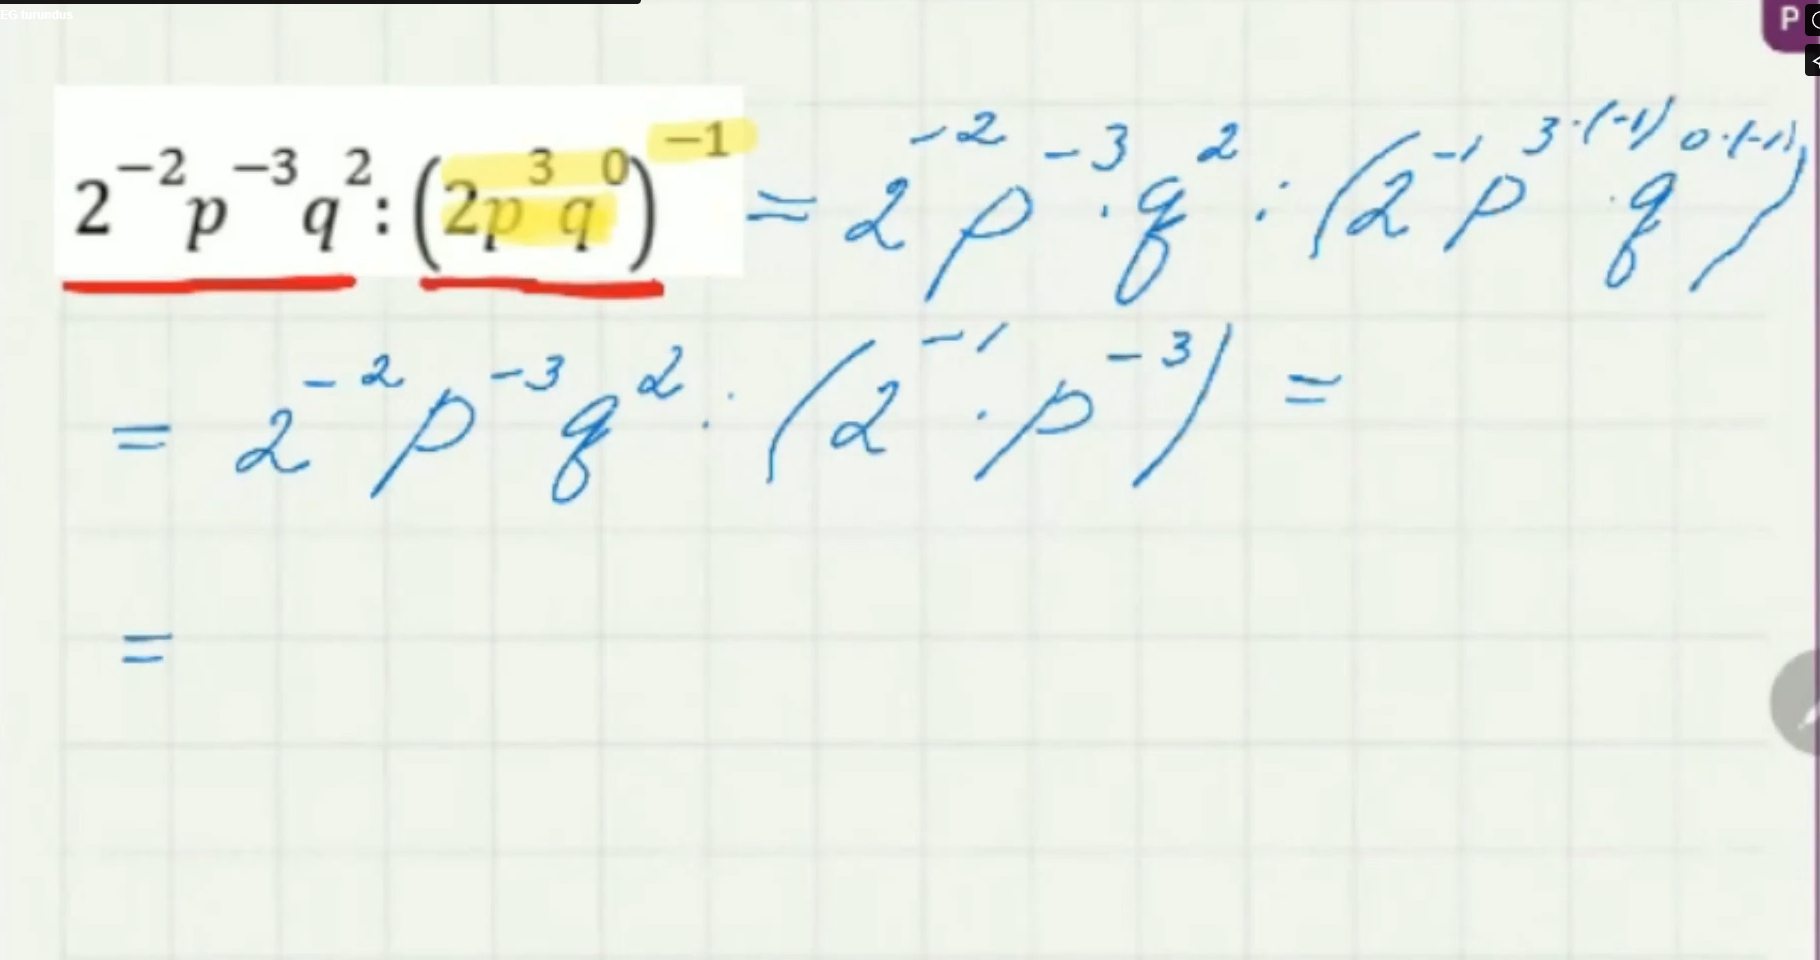 EG turundus
P
2⁻²p⁻³q² : (2p³q⁰)⁻¹ = 2⁻²p⁻³·q² : (2⁻¹p³·⁽⁻¹⁾·q⁰·⁽⁻¹⁾)
= 2⁻²p⁻³q² : (2⁻¹·p⁻³) =
=